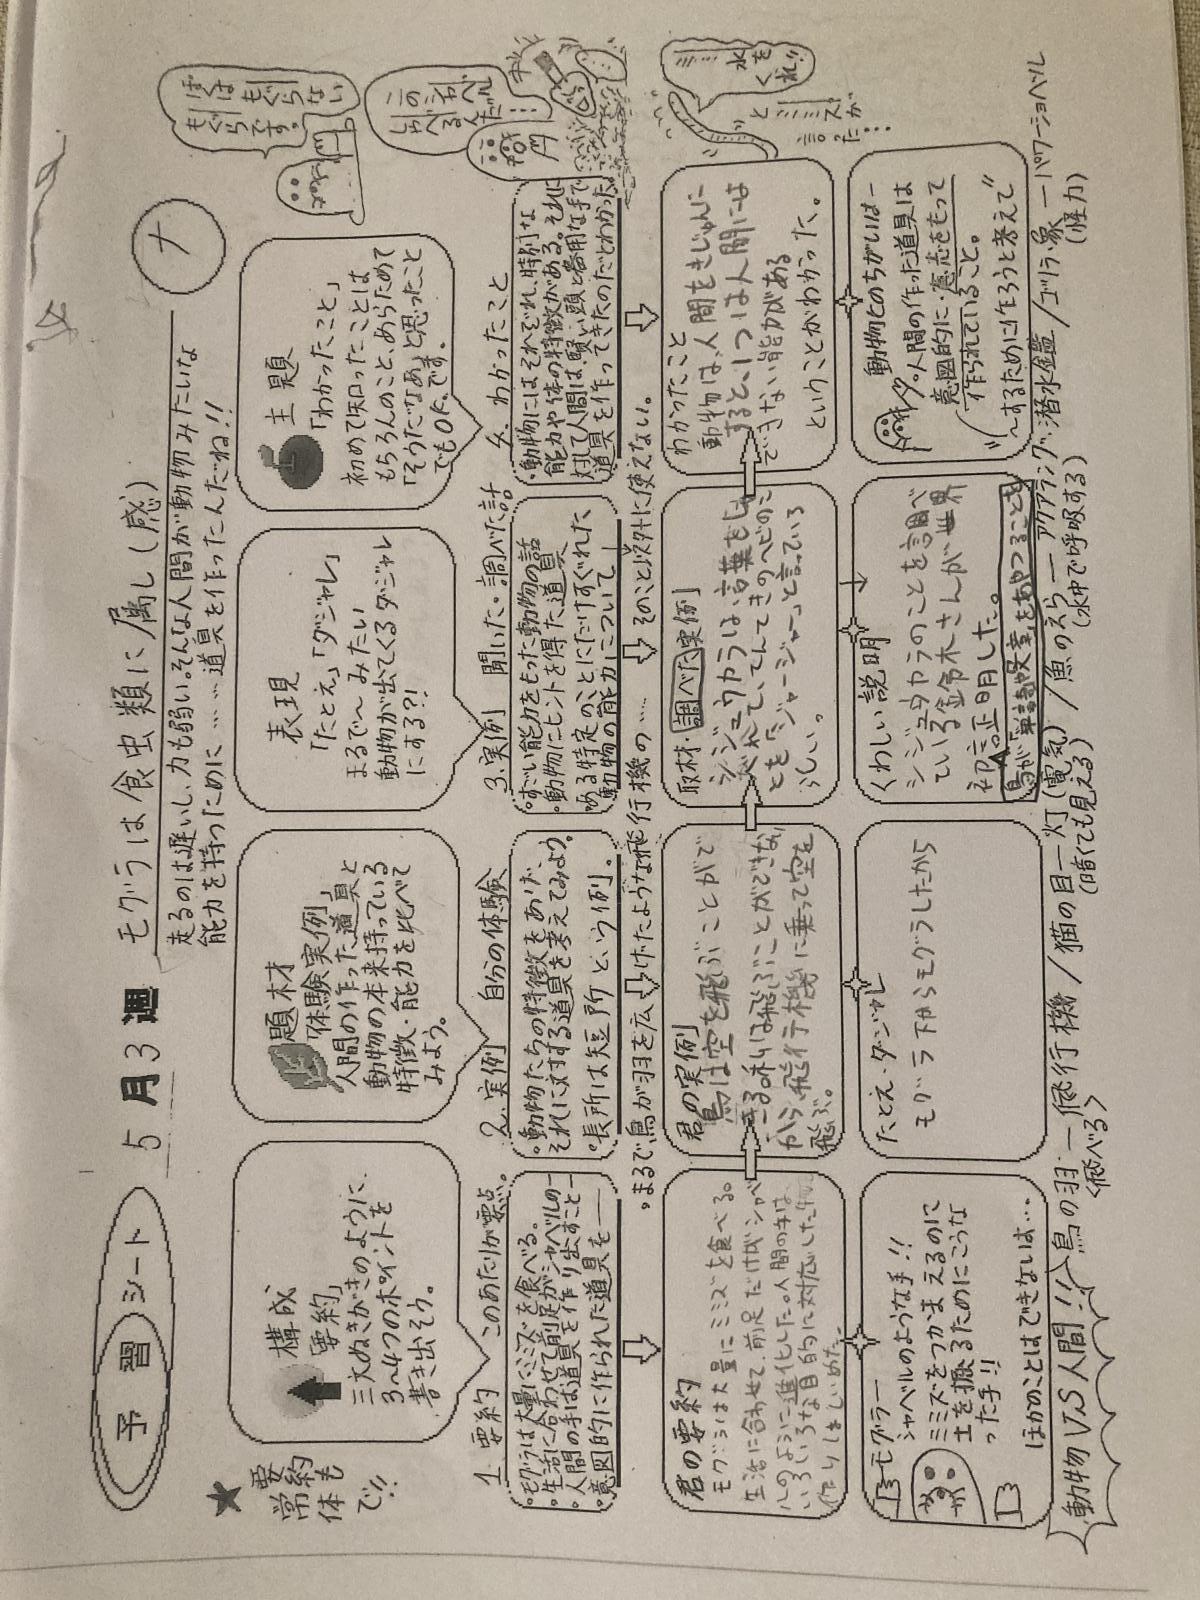 予習シート
5月3週
モグラは食虫類に属し(感)
ナ
走るのは遅いし、力も弱い。そんな人間が動物みたいな
能力を持つために……道具を作ったんだね!!
★要約も
常体
で!!
構成
「要約」
三文ぬきがきのように
3~4つのポイントを
書き出そう。
題材
「体験実例」
人間の作った道具と
動物の本来持っている
特徴・能力を比べて
みよう。
表現
「たとえ」「ダジャレ」
まるで~みたい
動物が出てくるダジャレ
にする?!
主題
「わかったこと」
初めて知ったことは
もちろんのこと、あらためて
「そうだなあ」と思ったこと
でもOK.です。
ぼくは もぐらない
もぐらです。
このシャベル
しゃべるんだ…
1. 要約 このあたりが要点。
・モグラは大量にミミズを食べる。
・生活に合わせて前足がシャベルの—
・人間の手は道具を作り出すこと—
・意図的に作られた道具を——
2. 実例 自分の体験
・動物たちの特徴をあげ、
それに対する道具を考えてみよう。
・長所は短所という例。
3. 実例 聞いた・調べた話
・すごい能力をもった動物の話
・動物にヒントを得た道具
・ある特定のことにだけすぐれた
動物の能力について
4. わかったこと
・動物にはそれぞれ、特別な
能力や体の特徴がある。それに
対して人間は、賢い頭と器用な手で
道具を作ってきたのだとわかった。
。まるで鳥が羽を広げたような飛行機の……
そのこと以外に使えない。
君の要約
モグラは大量にミミズを食べる。
生活に合わせて、前足だけがシャベ
ルのように進化した。人間の手は、
いろいろな目的に対応した物
作りしはじめた。
君の実例
鳥は空を飛ぶことがで
きる。
から、飛行機に乗って空を
飛ぶ。
取材・調べた実例
シジュウカラは、言葉をし
ゃべれていて、てんてきのヘビのこ
とを「ジャージャー」と言っている
らしい。
わかったこと
動物は、人間をきじゅんに
すると、1つは人間には
できない能力がある
ということがわかった。
水をくれ!!
とミミズが
言った…
モグラ—
シャベルのような手!!
ミミズをつかまえるのに
土を掘るためにこうな
った手!!
ほかのことはできないは…
たとえ・ダジャレ
モグラ下からモグラしたから
くわしい説明
シジュウカラのことを調べ
ている鈴木さんが世界
初証明した。
動物とのちがいは—
・人間の作った道具は
意図的に・意志をもって
作られていること。
"~するために作ろうと考えて"
動物VS人間!!
鳥の羽—飛行機/猫の目—灯(電気)/魚のえら—アクアラング・潜水艦/ゴリラ・象—パワーショベル
<飛べる> (暗くても見える) (水中で呼吸する) (怪力)